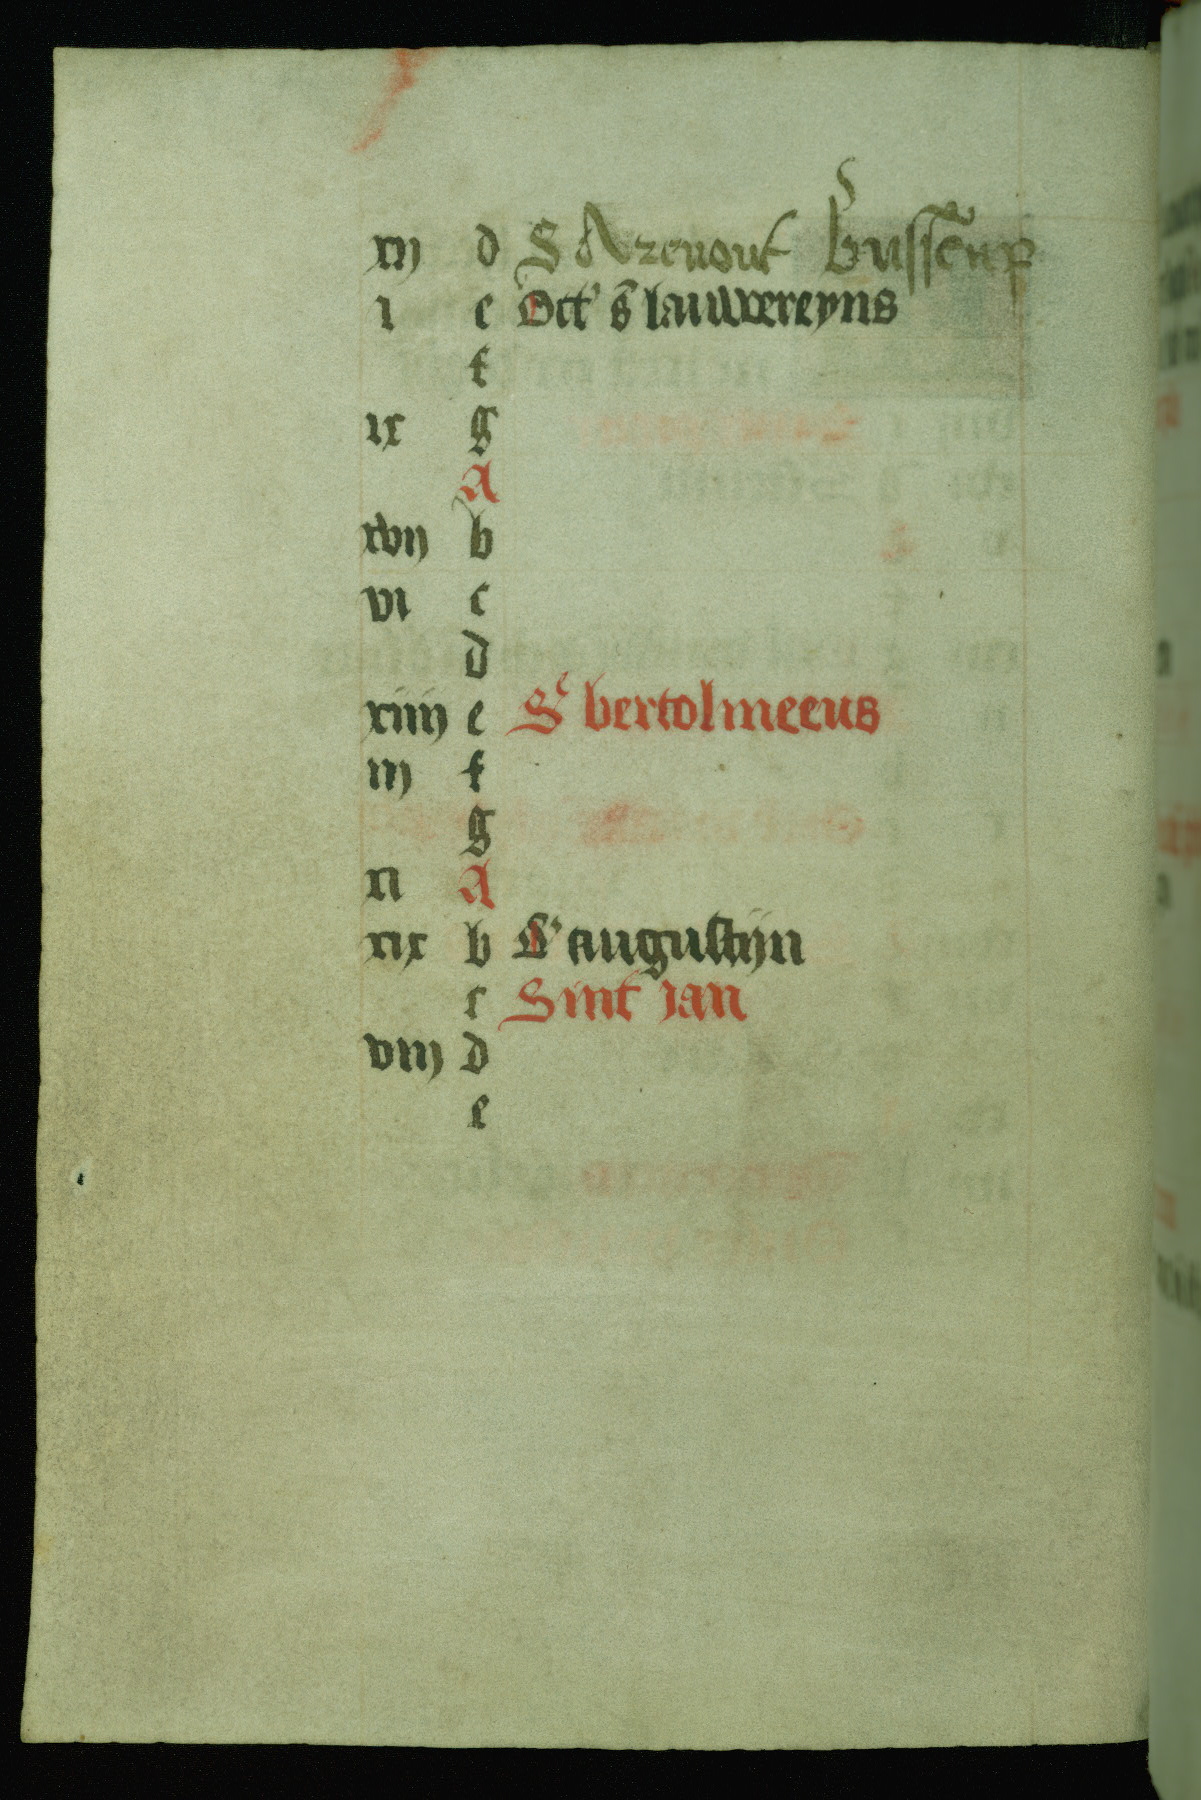 xij d S Arnout busscup
i e Oct' s lauwereyns
f
ix g
A
xvij b
vi c
d
xiiij e S^e bertolmeeus
iij f
g
xi A
xix b S' augustijn
c Sint ian
viij d
e